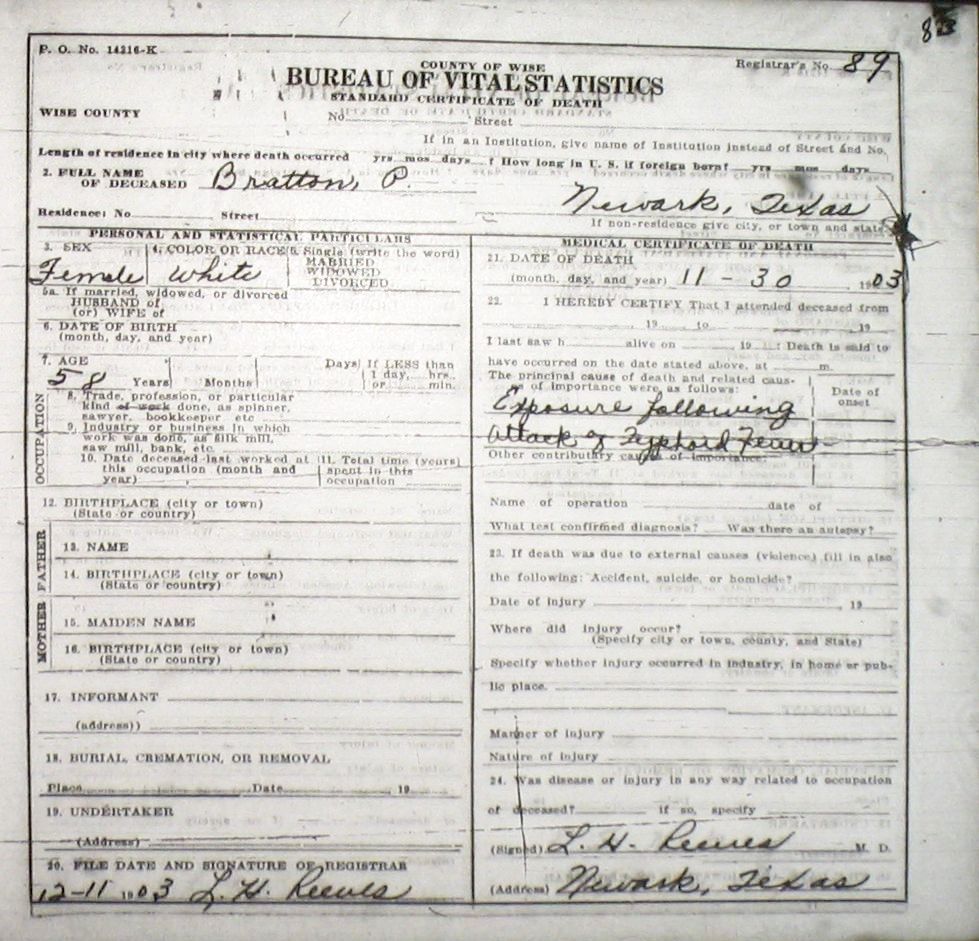 83
P. O. No. 14216-K
COUNTY OF WISE
Registrar's No. 89
BUREAU OF VITAL STATISTICS
STANDARD CERTIFICATE OF DEATH
WISE COUNTY
No. Street
If in an Institution, give name of Institution instead of Street and No.
Length of residence in city where death occurred yrs mos days ? How long in U. S. if foreign born? yrs mos days
2. FULL NAME
OF DECEASED Bratton, P.
Newark, Texas
Residence: No Street
If non-residence give city, or town and state
PERSONAL AND STATISTICAL PARTICULARS
3. SEX
4. COLOR OR RACE
5. Single (write the word)
MARRIED
WIDOWED
DIVORCED
Female White
5a. If married, widowed, or divorced
HUSBAND of
(or) WIFE of
6. DATE OF BIRTH
(month, day, and year)
7. AGE
58 Years Months Days
If LESS than
1 day, hrs.
or min.
OCCUPATION
8. Trade, profession, or particular
kind of work done, as spinner,
sawyer, bookkeeper etc
9. Industry or business in which
work was done, as silk mill,
saw mill, bank, etc.
10. Date deceased last worked at
this occupation (month and
year)
11. Total time (years)
spent in this
occupation
12. BIRTHPLACE (city or town)
(State or country)
FATHER
13. NAME
14. BIRTHPLACE (city or town)
(State or country)
MOTHER
15. MAIDEN NAME
16. BIRTHPLACE (city or town)
(State or country)
17. INFORMANT
(address))
18. BURIAL, CREMATION, OR REMOVAL
Place Date 19
19. UNDERTAKER
(Address)
20. FILE DATE AND SIGNATURE OF REGISTRAR
12-11 1903 L. H. Reeves
MEDICAL CERTIFICATE OF DEATH
21. DATE OF DEATH
(month, day, and year) 11 - 30 1903
22. I HEREBY CERTIFY That I attended deceased from
19 to 19
I last saw h alive on 19 Death is said to
have occurred on the date stated above, at m.
The principal cause of death and related caus-
es of importance were, as follows:
Date of
onset
Exposure following
attack of Typhoid Fever
Other contributory causes of importance:
Name of operation date of
What test confirmed diagnosis? Was there an autopsy?
23. If death was due to external causes (violence) fill in also
the following: Accident, suicide, or homicide?
Date of injury 19
Where did injury occur?
(Specify city or town, county, and State)
Specify whether injury occurred in industry, in home or pub-
lic place.
Manner of injury
Nature of injury
24. Was disease or injury in any way related to occupation
of deceased? if so, specify
(Signed) L. H. Reeves M. D.
(Address) Newark, Texas